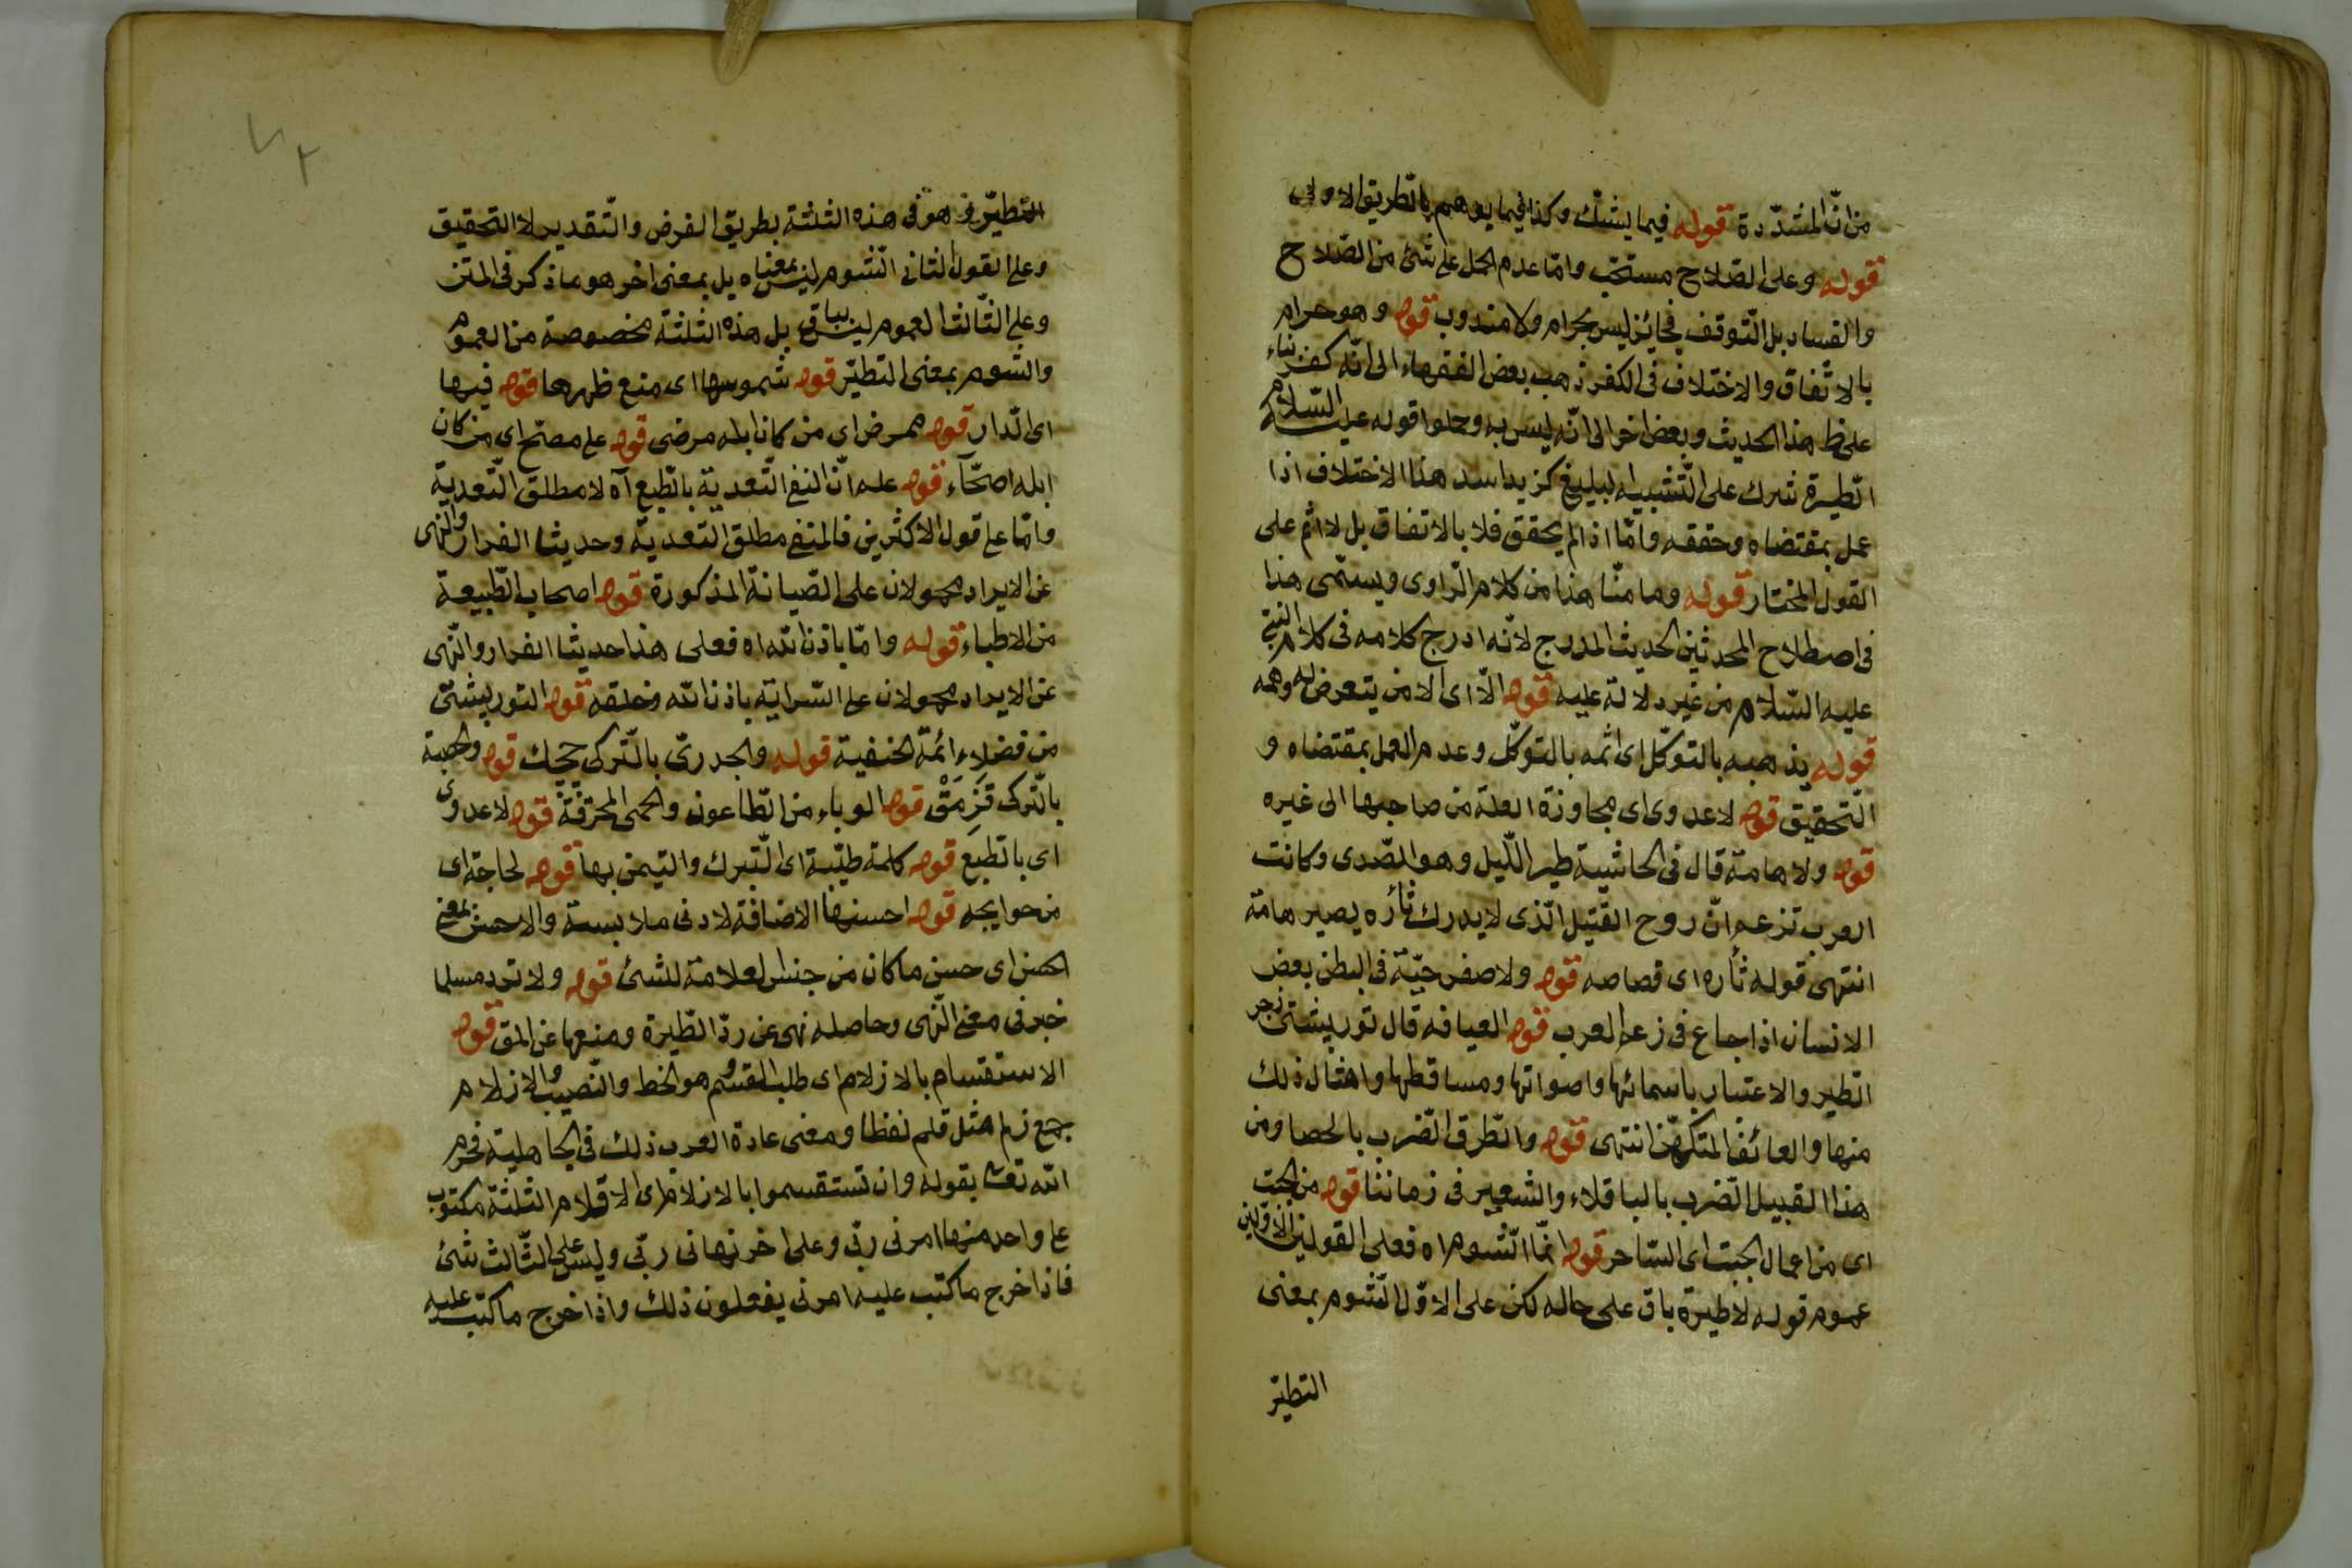 من انّ المشدّدة قوله فيما يشكّ وكذا فيما يوهم بالطريق الاولى
قوله وعلى الصّلاح مستحبّ وامّا عدم الحمل على شئ من الصّلاح
والفساد بل التّوقف فجائز ليس بحرام ولا مندوب قوله وهو حرام
بالاتّفاق والاختلاف فى الكفر ذهب بعض الفقهاء الى انّه كفر بناء
على ظ هذا الحديث وبعض اخر الى انّه ليس به وحملوا قوله عليه السّلام
الطّيرة شرك على التّشبيه البليغ كزيد اسد هذا الاختلاف اذا
عمل بمقتضاه وحققه وامّا اذا لم يحقق فلا بالاتفاق بل لا اثم على
القول المختار قوله وما منّا هذا من كلام الرّاوى ويسمّى هذا
فى اصطلاح المحدثين الحديث المدرج لانّه ادرج كلامه فى كلام النبىّ
عليه السّلام من غير دلالة عليه قوله الّا اى الا من يتعرض له وهمه
قوله يذهبه بالتوكّل اى اثمه بالتوكّل وعدم العمل بمقتضاه و
التّحقيق قوله لا عدوى اى مجاوزة العلة من صاحبها الى غيره
قوله ولا هامة قال فى الحاشية طير اللّيل وهو الصّدى وكانت
العرب تزعم انّ روح القتيل الّذى لا يدرك ثأره يصير هامة
انتهى قوله ثأره اى قصاصه قوله ولا صفر حيّة فى البطن بعض
الانسان اذا جاع فى زعم العرب قوله العيافه قال توربيشتى زجر
الطير والاعتبار باسمائها واصواتها ومساقطها وامثال ذلك
منها والعائف المتكهّن انتهى قوله والطّرق الضّرب بالحصا ومن
هذا القبيل الضّرب بالباقلاء والشعير فى زماننا قوله من الجبت
اى من اعمال الجبت اى السّاحر قوله انمّا الشّوم اه فعلى القولين الاوّلين
عموم قوله لا طيرة باق على حاله لكن على الاوّل الشّوم بمعنى
التطيّر
التطيّر هو فى هذه الثلثة بطريق الفرض والتّقدير لا التحقيق
وعلى القول الثانى الشّوم ليس بمعناه بل بمعنى اخر هو ما ذكر فى المتن
وعلى الثّالث العموم ليس بباق بل هذه الثلثة مخصوصة من العموم
والشوم بمعنى التطيّر قوله شموسها اى منع ظهرها قوله فيها
اى الدّار قوله ممرض اى من كان ابله مرضى قوله على مصحّ اى من كان
ابله اصحّاء قوله على انّ النفى التّعدية بالطّبع آه لا مطلق التّعدية
وامّا على قول الاكثرين فالمنفى مطلق التّعدية وحديث الفرار والنّهى
عن الايراد محمولان على الصّيانة المذكورة قوله اصحاب الطّبيعة
من الاطباء قوله وامّا باذن الله اه فعلى هذا حديث الفرار والنّهى
عن الايراد محمولان على السّراية باذن الله وخلقه قوله التوربيشتى
من فضلاء ائمّة الحنفية قوله والجدرىّ بالتّركى چچك قوله والحصبة
بالتّركى قَزَمَقْ قوله الوباء من الطّاعون والحمى المحرقة قوله لا عدوى
اى بالطبع قوله كلمة طيّبة اى التّبرك والتيمن بها قوله لحاجة اى
من حوايجه قوله احسنها الاضافة لادنى ملابسة والاحسن بمعنى
الحسن اى حسن ما كان من جنس العلامة للشئ قوله ولا ترد مسلما
خبر فى معنى النّهى وحاصله نهى عن ردّ الطّيرة ومنعها عن المق قوله
الاستقسام بالازلام اى طلب القسم وهو الحظ والنّصيب والازلام
جمع زلم مثل قلم لفظا ومعنى عادة العرب ذلك فى الجاهلية فحرم
الله تعالى بقوله وان تستقسموا بالازلام اى الاقلام الثلثة مكتوب
على واحد منها امرنى ربّى وعلى اخر نهانى ربّى وليس على الثّالث شئ
فاذا خرج ما كتب عليه امرنى يفعلون ذلك واذا خرج ما كتب عليه